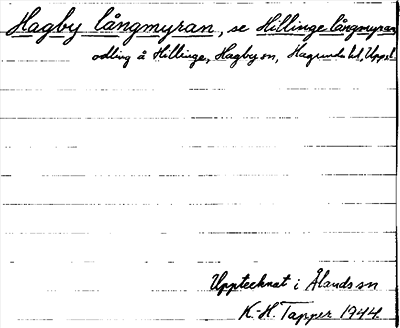 Hagby långmyran, se Hillinge långmyran
odling å Hillinge, Hagby sn, Hagunda hd, Uppl.
Upptecknat i Ålands sn
K-H. Tapper 1944